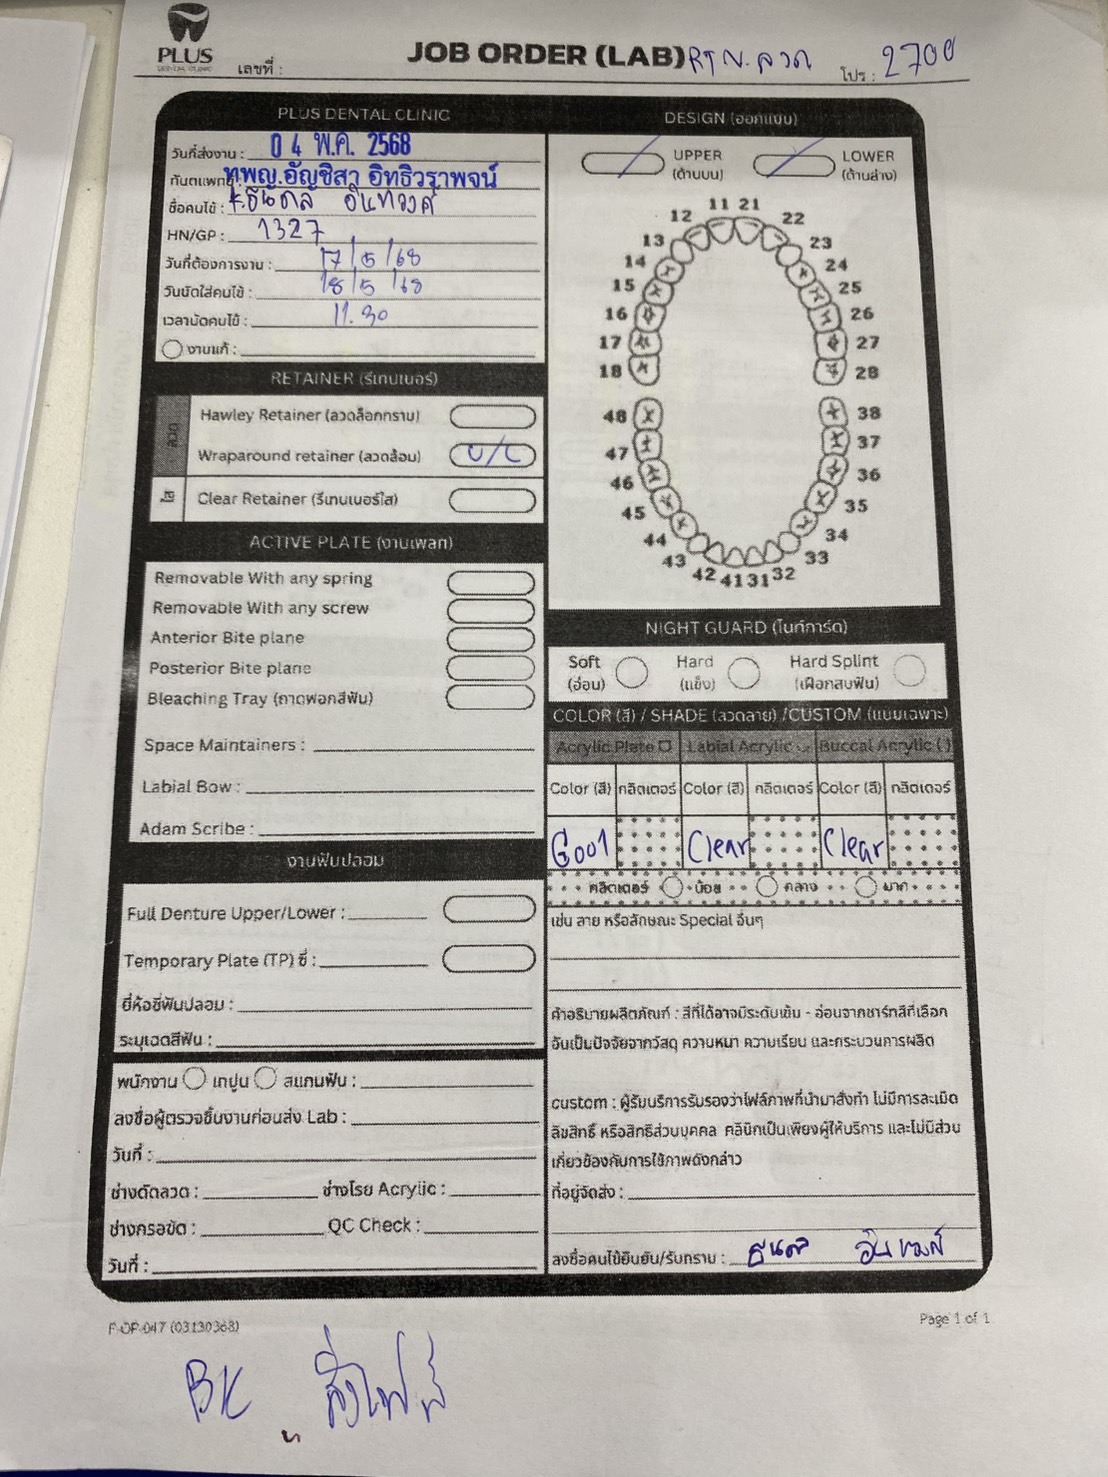 PLUS
DENTAL CLINIC
เลขที่ :
JOB ORDER (LAB) RTN. ลวด
โปร : 2700
PLUS DENTAL CLINIC
วันที่ส่งงาน : 04 พ.ค. 2568
ทันตแพทย์ : ทพญ.อัญชิสา อิทธิวราพจน์
ชื่อคนไข้ : K.ธนดล อินทวงศ์
HN/GP : 1327
วันที่ต้องการงาน : 17/5/68
วันนัดใส่คนไข้ : 18/5/68
เวลานัดคนไข้ : 11.30
งานแก้ :
RETAINER (รีเทนเนอร์)
ลวด
Hawley Retainer (ลวดล็อกกราม)
Wraparound retainer (ลวดล้อม) U/L
ใส
Clear Retainer (รีเทนเนอร์ใส)
ACTIVE PLATE (งานเพลท)
Removable With any spring
Removable With any screw
Anterior Bite plane
Posterior Bite plane
Bleaching Tray (ถาดฟอกสีฟัน)
Space Maintainers :
Labial Bow :
Adam Scribe :
งานฟันปลอม
Full Denture Upper/Lower :
Temporary Plate (TP) ซี่ :
ยี่ห้อซี่ฟันปลอม :
ระบุเฉดสีฟัน :
พนักงาน เทปูน สแกนฟัน :
ลงชื่อผู้ตรวจชิ้นงานก่อนส่ง Lab :
วันที่ :
ช่างดัดลวด : ช่างโรย Acrylic :
ช่างกรอขัด : QC Check :
วันที่ :
DESIGN (ออกแบบ)
UPPER LOWER
(ด้านบน) (ด้านล่าง)
11 21
12 22
13 23
14 24
15 25
16 26
17 27
18 28
48 38
47 37
46 36
45 35
44 34
43 33
42 41 31 32
NIGHT GUARD (ไนท์การ์ด)
Soft Hard Hard Splint
(อ่อน) (แข็ง) (เฝือกสบฟัน)
COLOR (สี) / SHADE (ลวดลาย) /CUSTOM (แบบเฉพาะ)
Acrylic Plate Labial Acrylic Buccal Acrylic ( )
Color (สี) กลิตเตอร์ Color (สี) กลิตเตอร์ Color (สี) กลิตเตอร์
G001 Clear Clear
กลิตเตอร์ น้อย กลาง มาก
เช่น ลาย หรือลักษณะ Special อื่นๆ
คำอธิบายผลิตภัณฑ์ : สีที่ได้อาจมีระดับเข้ม - อ่อนจากชาร์ทสีที่เลือก
อันเป็นปัจจัยจากวัสดุ ความหนา ความเรียบ และกระบวนการผลิต
custom : ผู้รับบริการรับรองว่าไฟล์ภาพที่นำมาสั่งทำ ไม่มีการละเมิด
ลิขสิทธิ์ หรือสิทธิส่วนบุคคล คลินิกเป็นเพียงผู้ให้บริการ และไม่มีส่วน
เกี่ยวข้องกับการใช้ภาพดังกล่าว
ที่อยู่จัดส่ง :
ลงชื่อคนไข้ยืนยัน/รับทราบ : ธนดล อินทวงศ์
F-OP-047 (03130368)
Page 1 of 1
BK ส่งไฟล์